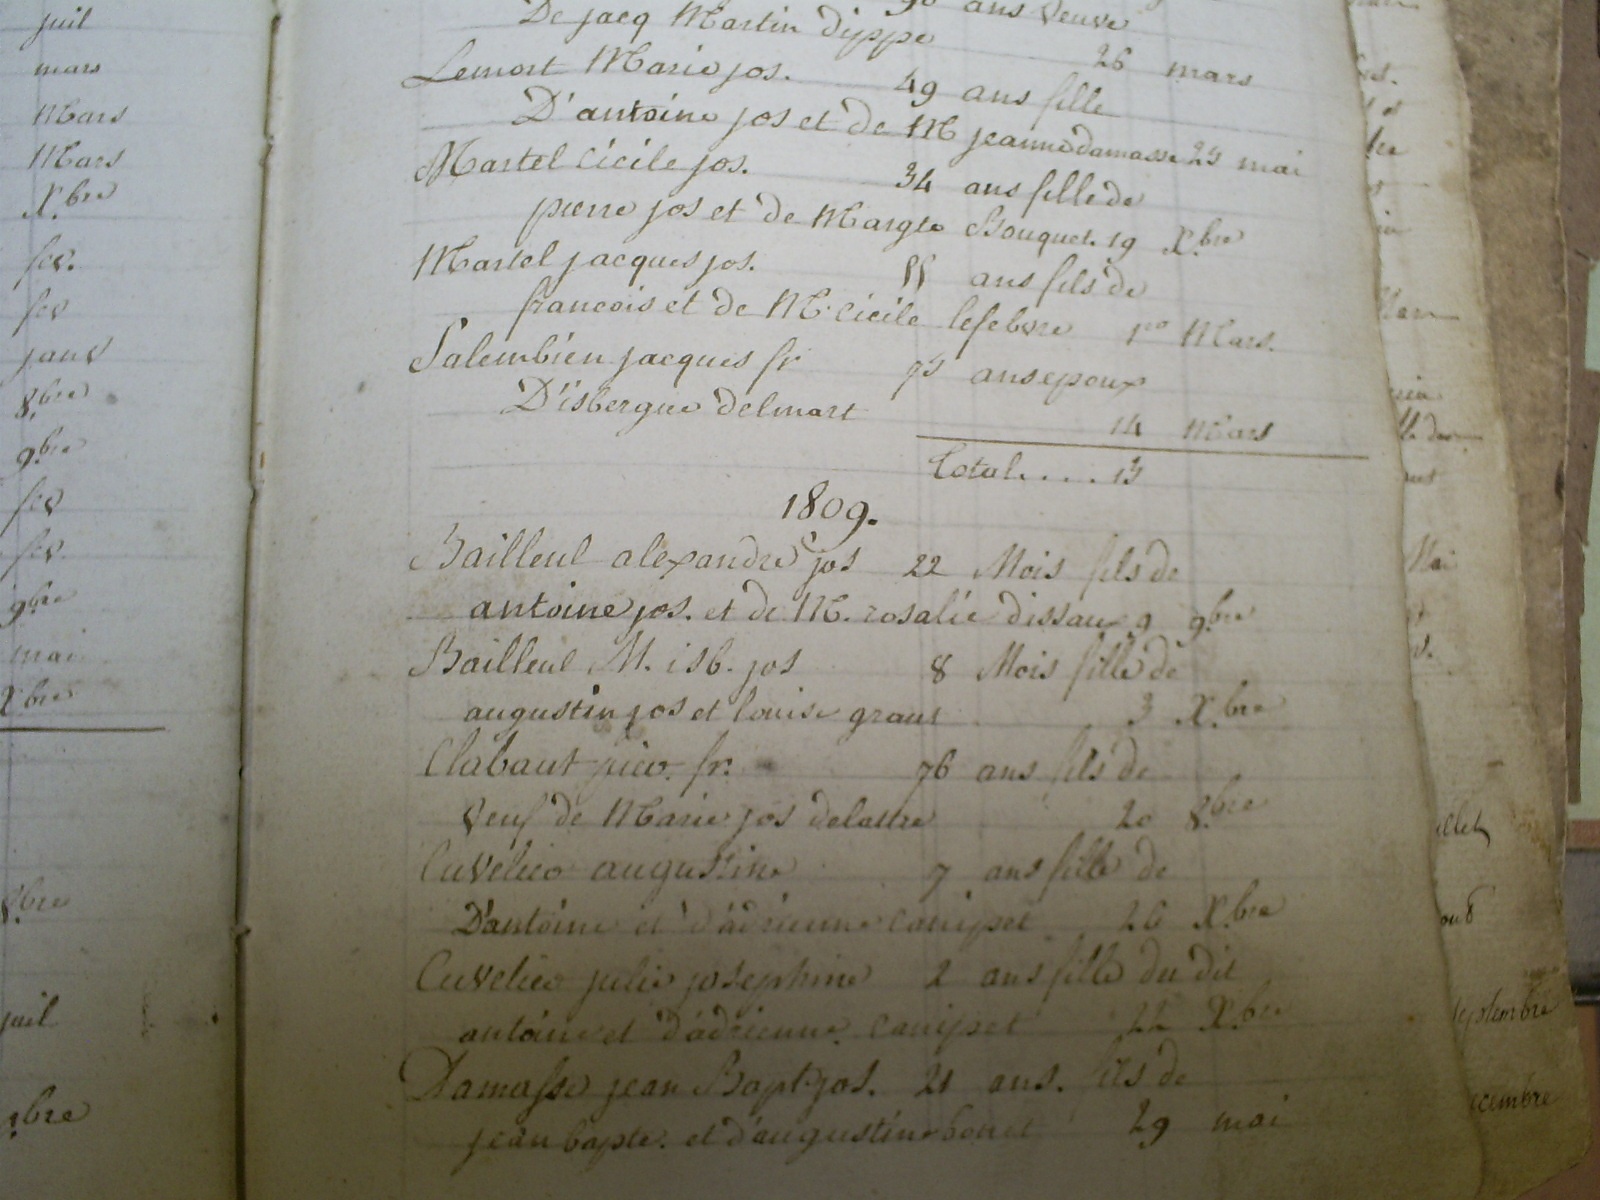 juil
mars
Mars
Mars
X.bre
fev.
fev
janv
8.bre
9bre
fev
fev.
9bre
mai
Xbre
8.bre
juil
9bre
90 ans veuve
De jacq Martin dippe 26 mars
Lemort Marie jos. 49 ans fille
D'antoine jos et de M jeanne damasse 23 mai
Martel Cicile jos. 34 ans fille de
pierre jos et de Margte Bouquet 19 X.bre
Martel jacques jos. 55 ans fils de
francois et de M. Cicile lefebvre 1er Mars.
Salembien jacques fr 73 ans epoux
D'isbergue delmart 14 Mars
Total.... 13
1809.
Bailleul alexandre jos 22 Mois fils de
antoine jos. et de M. rosalie dissaux 9 9bre
Bailleul M. isb. jos 8 Mois fille de
augustin jos et louise graut 3 X.bre
Clabaut fr. 76 ans fils de
veuf de Marie jos delattre 20 8.bre
Cuvelier augustine 7 ans fille de
D'antoine et d'adrienne canipet 26 X.bre
Cuvelier julie josephine 2 ans fille du dit
antoine et d'adrienne canipet 22 X.bre
Damasse jean Bapt. jos. 21 ans. fils de
jean bapte. et d'augustine bonet 29 mai
septembre